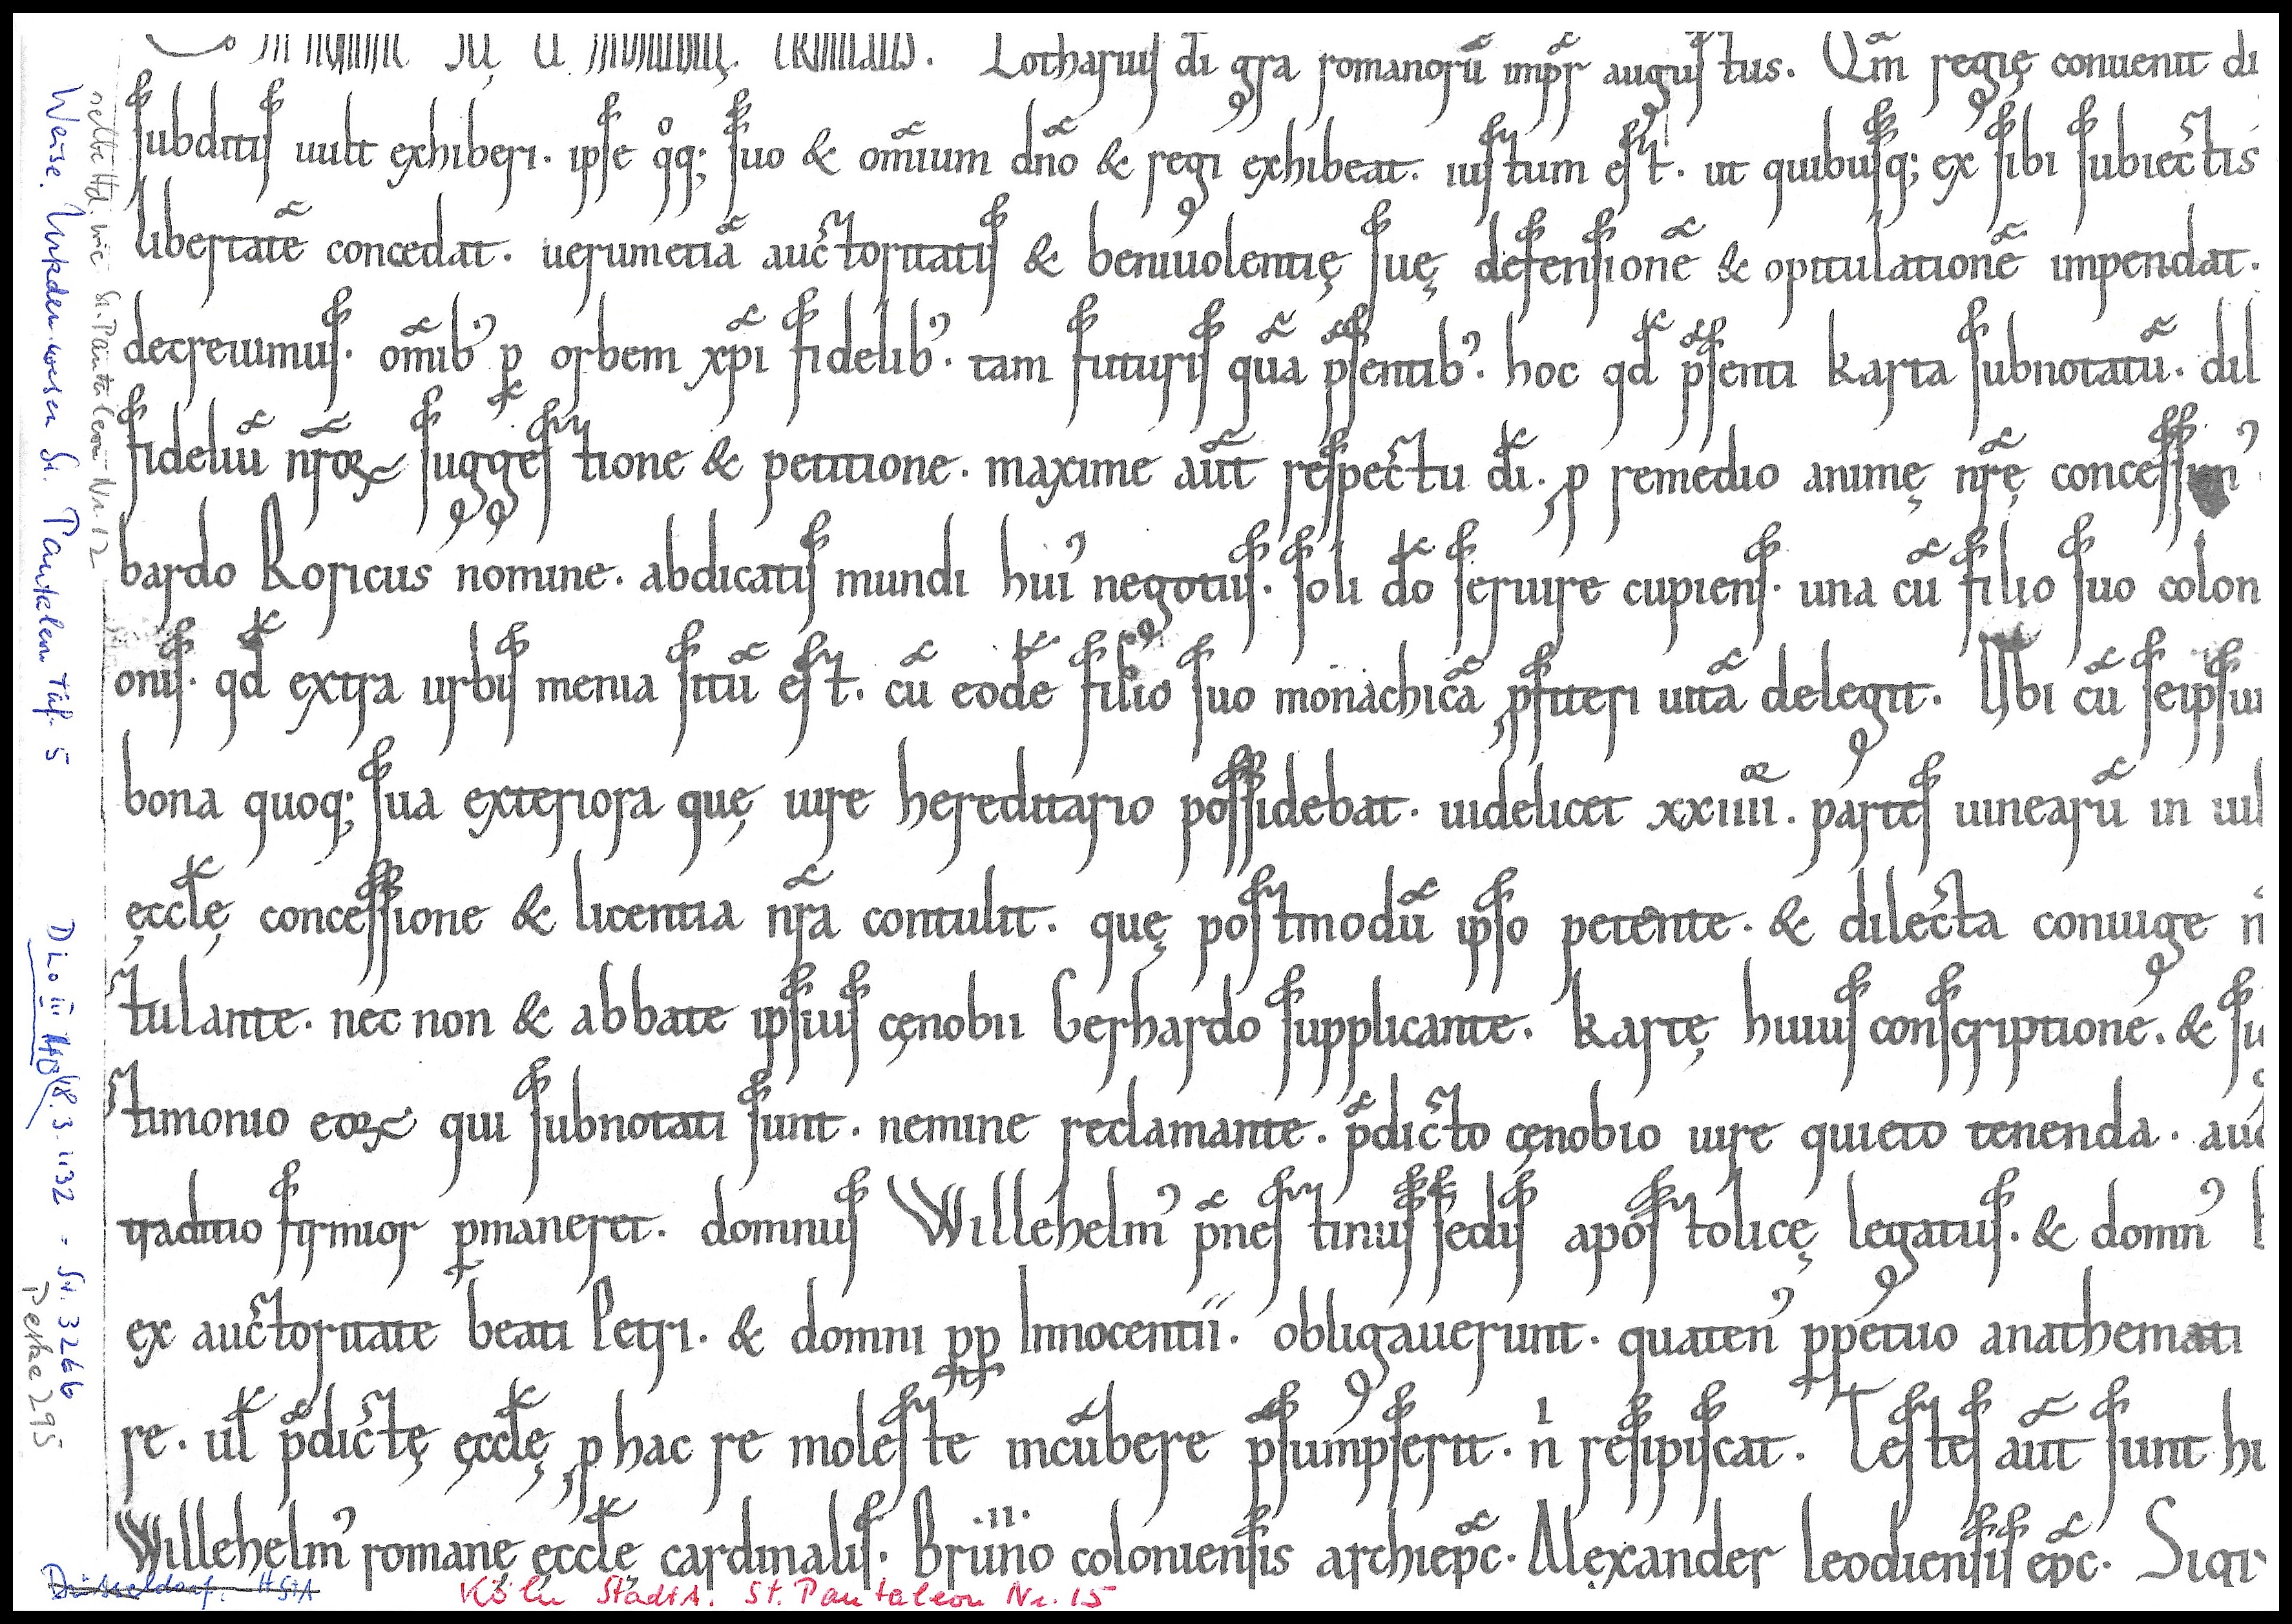 Lotharius di gra romanorū impr augustus. Qm̄ regię conuenit di
subditis uult exhiberi. ipse qq; suo & omium dno & regi exhibeat. iustum est. ut quibusq; ex sibi subiectis
libertatē concedat. uerumetiā auctoritatis & beniuolentię suę defensionē & opitulationē impendat.
decreuimus. omib' p orbem xpi fidelib'. tam futuris quā psentib'. hoc qd psenti karta subnotatū. dil
fideliū nrōꝝ suggestione & petitione. maxime aūt respectu di. p remedio animę nrę
bardo Roricus nomine. abdicatis mundi hui' negotiis. soli do seruire cupiens. una cū filio suo colon
onis. qd extra urbis menia sitū est. cū eodē filio suo monachicā pfiteri uitā delegit. Ubi cū seipsum
bona quoq; sua exteriora quę iure hereditario possidebat. uidelicet xxiiii. partes uinearū in uil
ęcclę concessione & licentia nra contulit. quę postmodū ipso petente. & dilecta coniuge n
tulante. nec non & abbate ipsius cęnobii Gerhardo supplicante. kartę huius conscriptione. & si
stimonio eoꝝ qui subnotati sunt. nemine reclamante. pdicto cęnobio iure quieto tenenda. auc
traditio firmior pmaneret. domnus Willehelm' pnestinus sedis apostolicę legatus. & domn'
ex auctoritate beati Petri. & domni pp Innocentii. obligauerunt. quaten' ppetuo anathemati
re. ul pdictę ęcclę p hac re moleste incūbere psumpserit. n resipiscat. Testes aūt sunt hi
Willehelm' romanę ęcclę cardinalis. Bruno coloniensis archiepc. Alexander leodiensis epc. Sigi
Köln StadtA. St. Pantaleon Nr. 15
Düsseldorf. HStA
Weise. Urkundenwesen St. Pantaleon Taf. 5
DLo III 40 (8.3.1132 - St. 3266
selbe Hd. wie St. Pantaleon Nr. 12